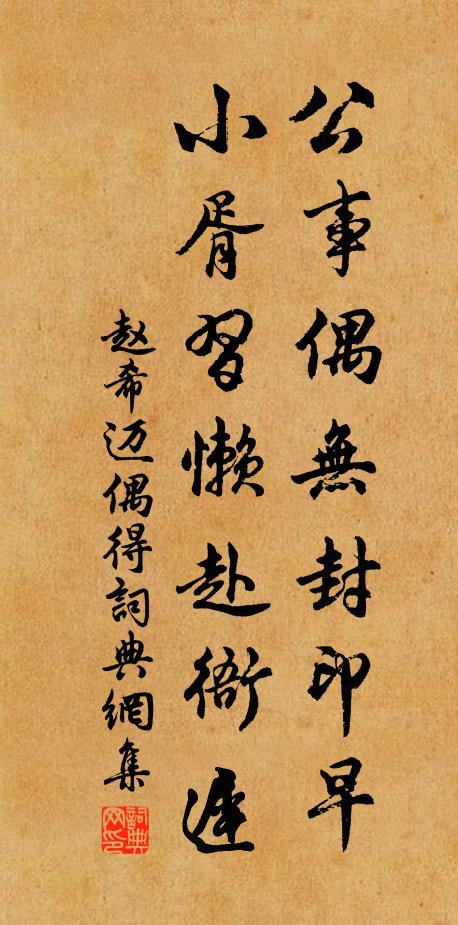 公事偶無封印早
小胥習懶赴衙遲
赵希迈偶得詞典網集
詞典网印